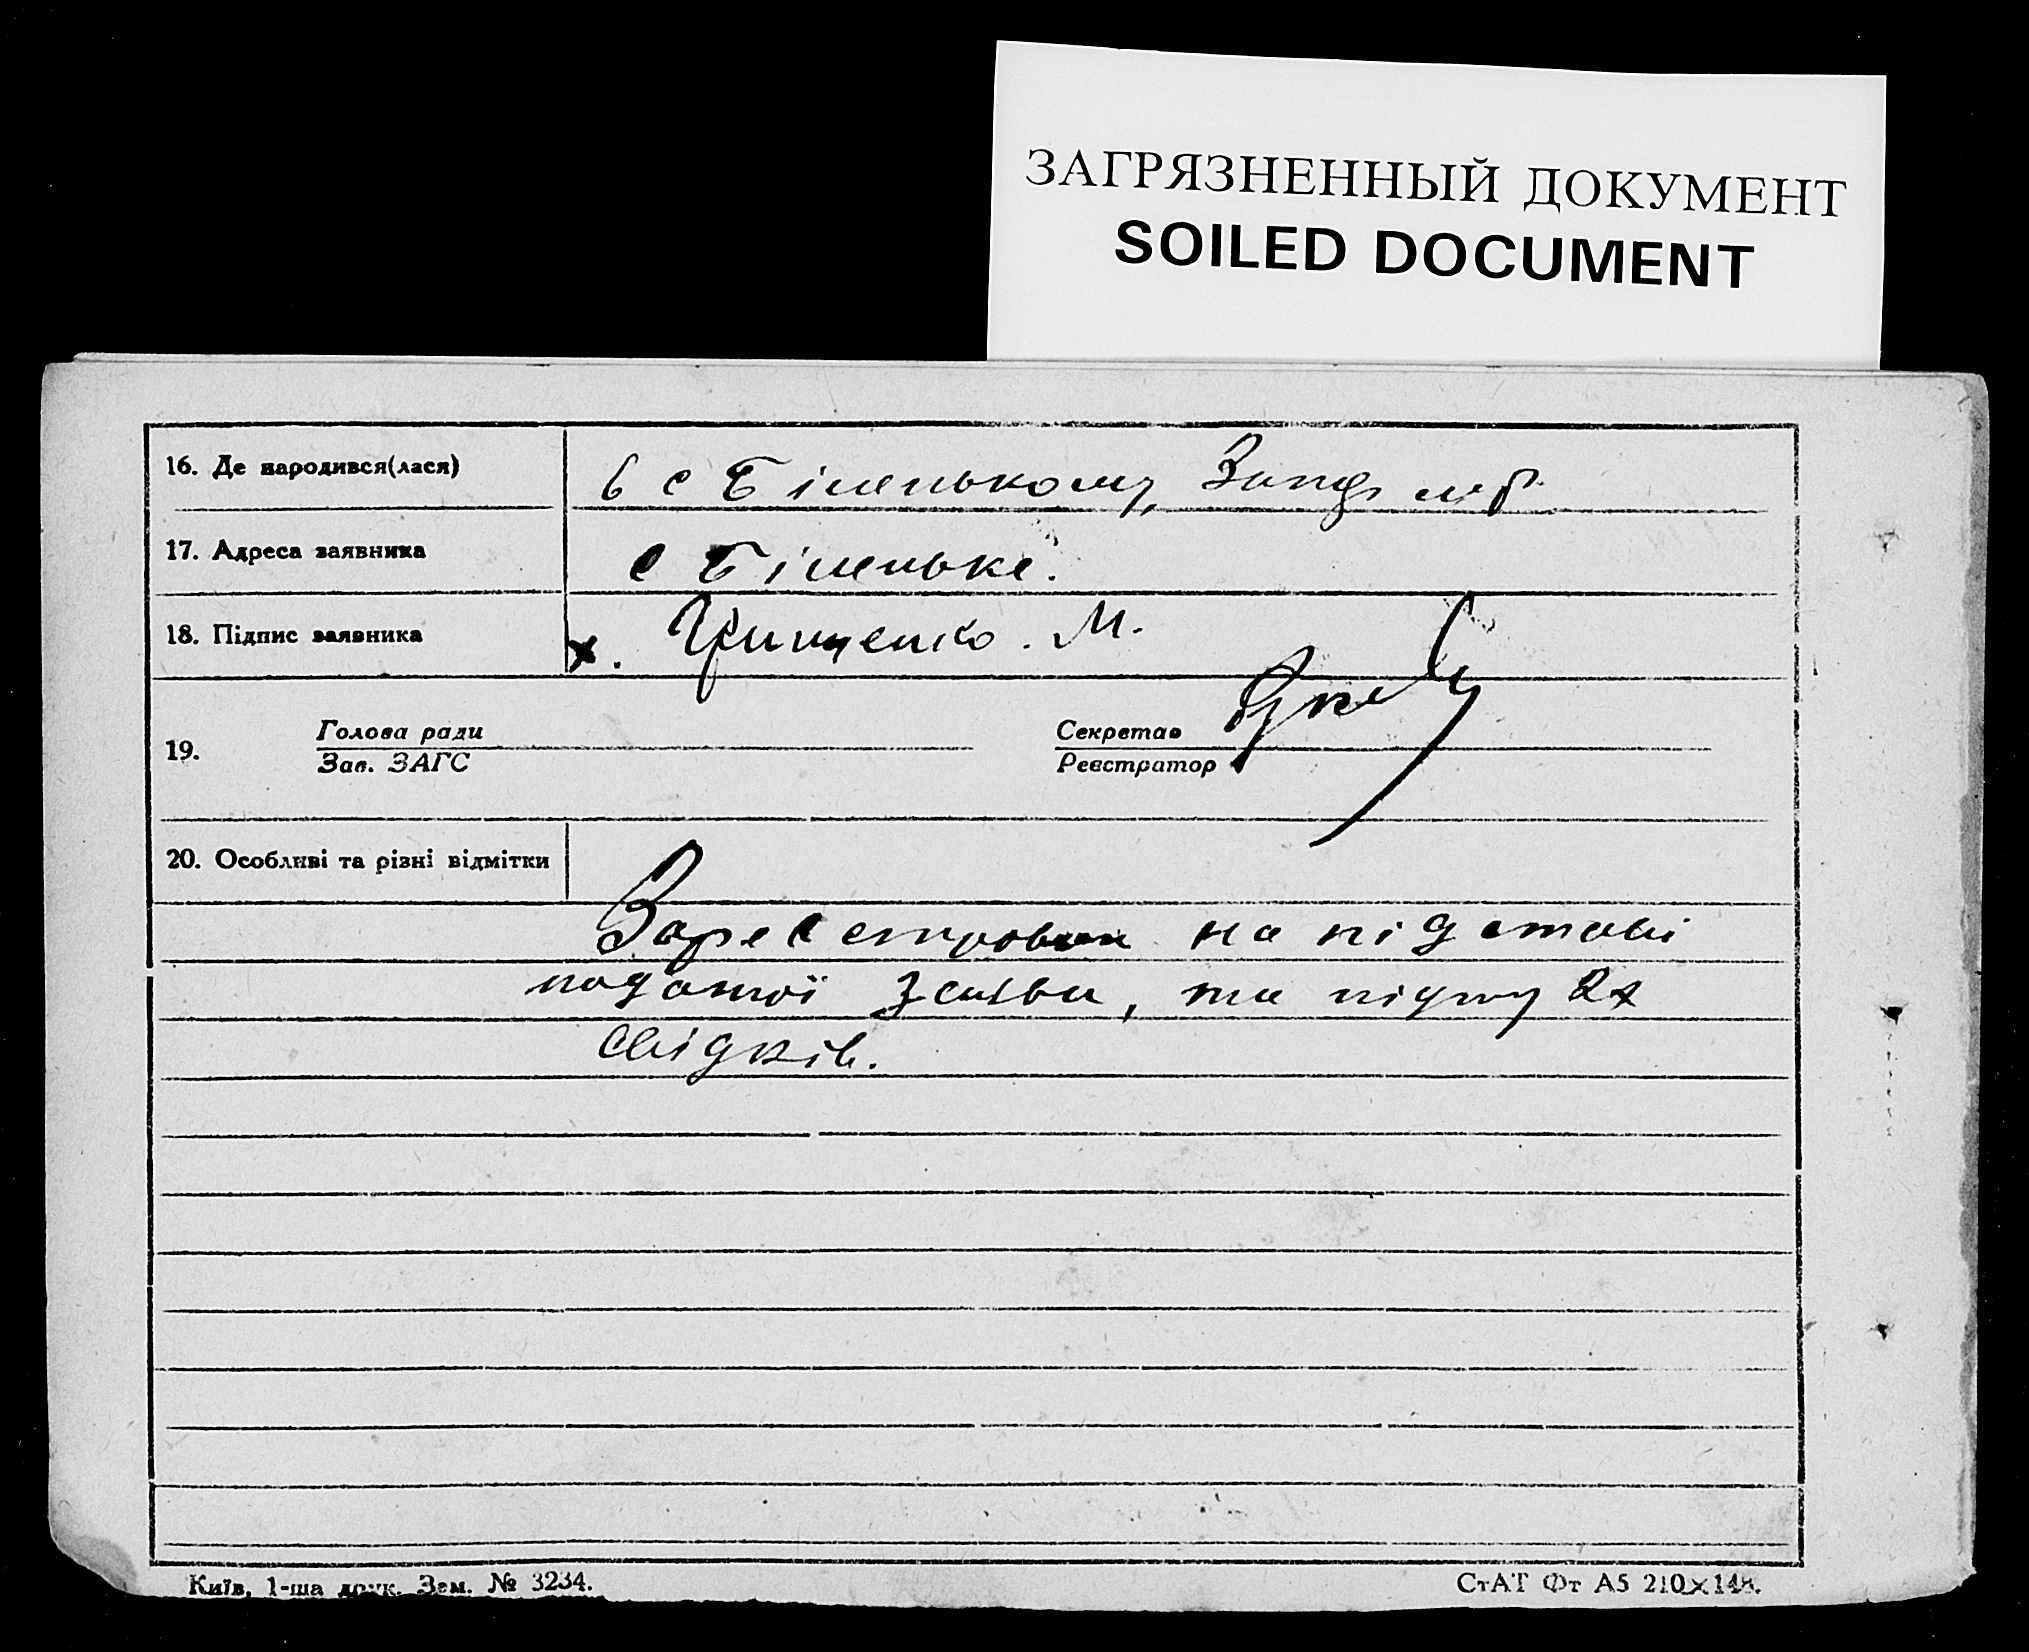 ЗАГРЯЗНЕННЫЙ ДОКУМЕНТ
SOILED DOCUMENT
16. Де народився(лася)
в с Біленькому,
17. Адреса заявника
с Біленьке.
18. Підпис заявника
х. Грищенко. М.
19. Голова ради
Зав. ЗАГС
Секретар
Реєстратор
20. Особливі та різні відмітки
на підставі
поданої заяви, та 2х
свідків.
Київ, 1-ша друк. Зам. № 3234.
СтАТ Фт А5 210×148.